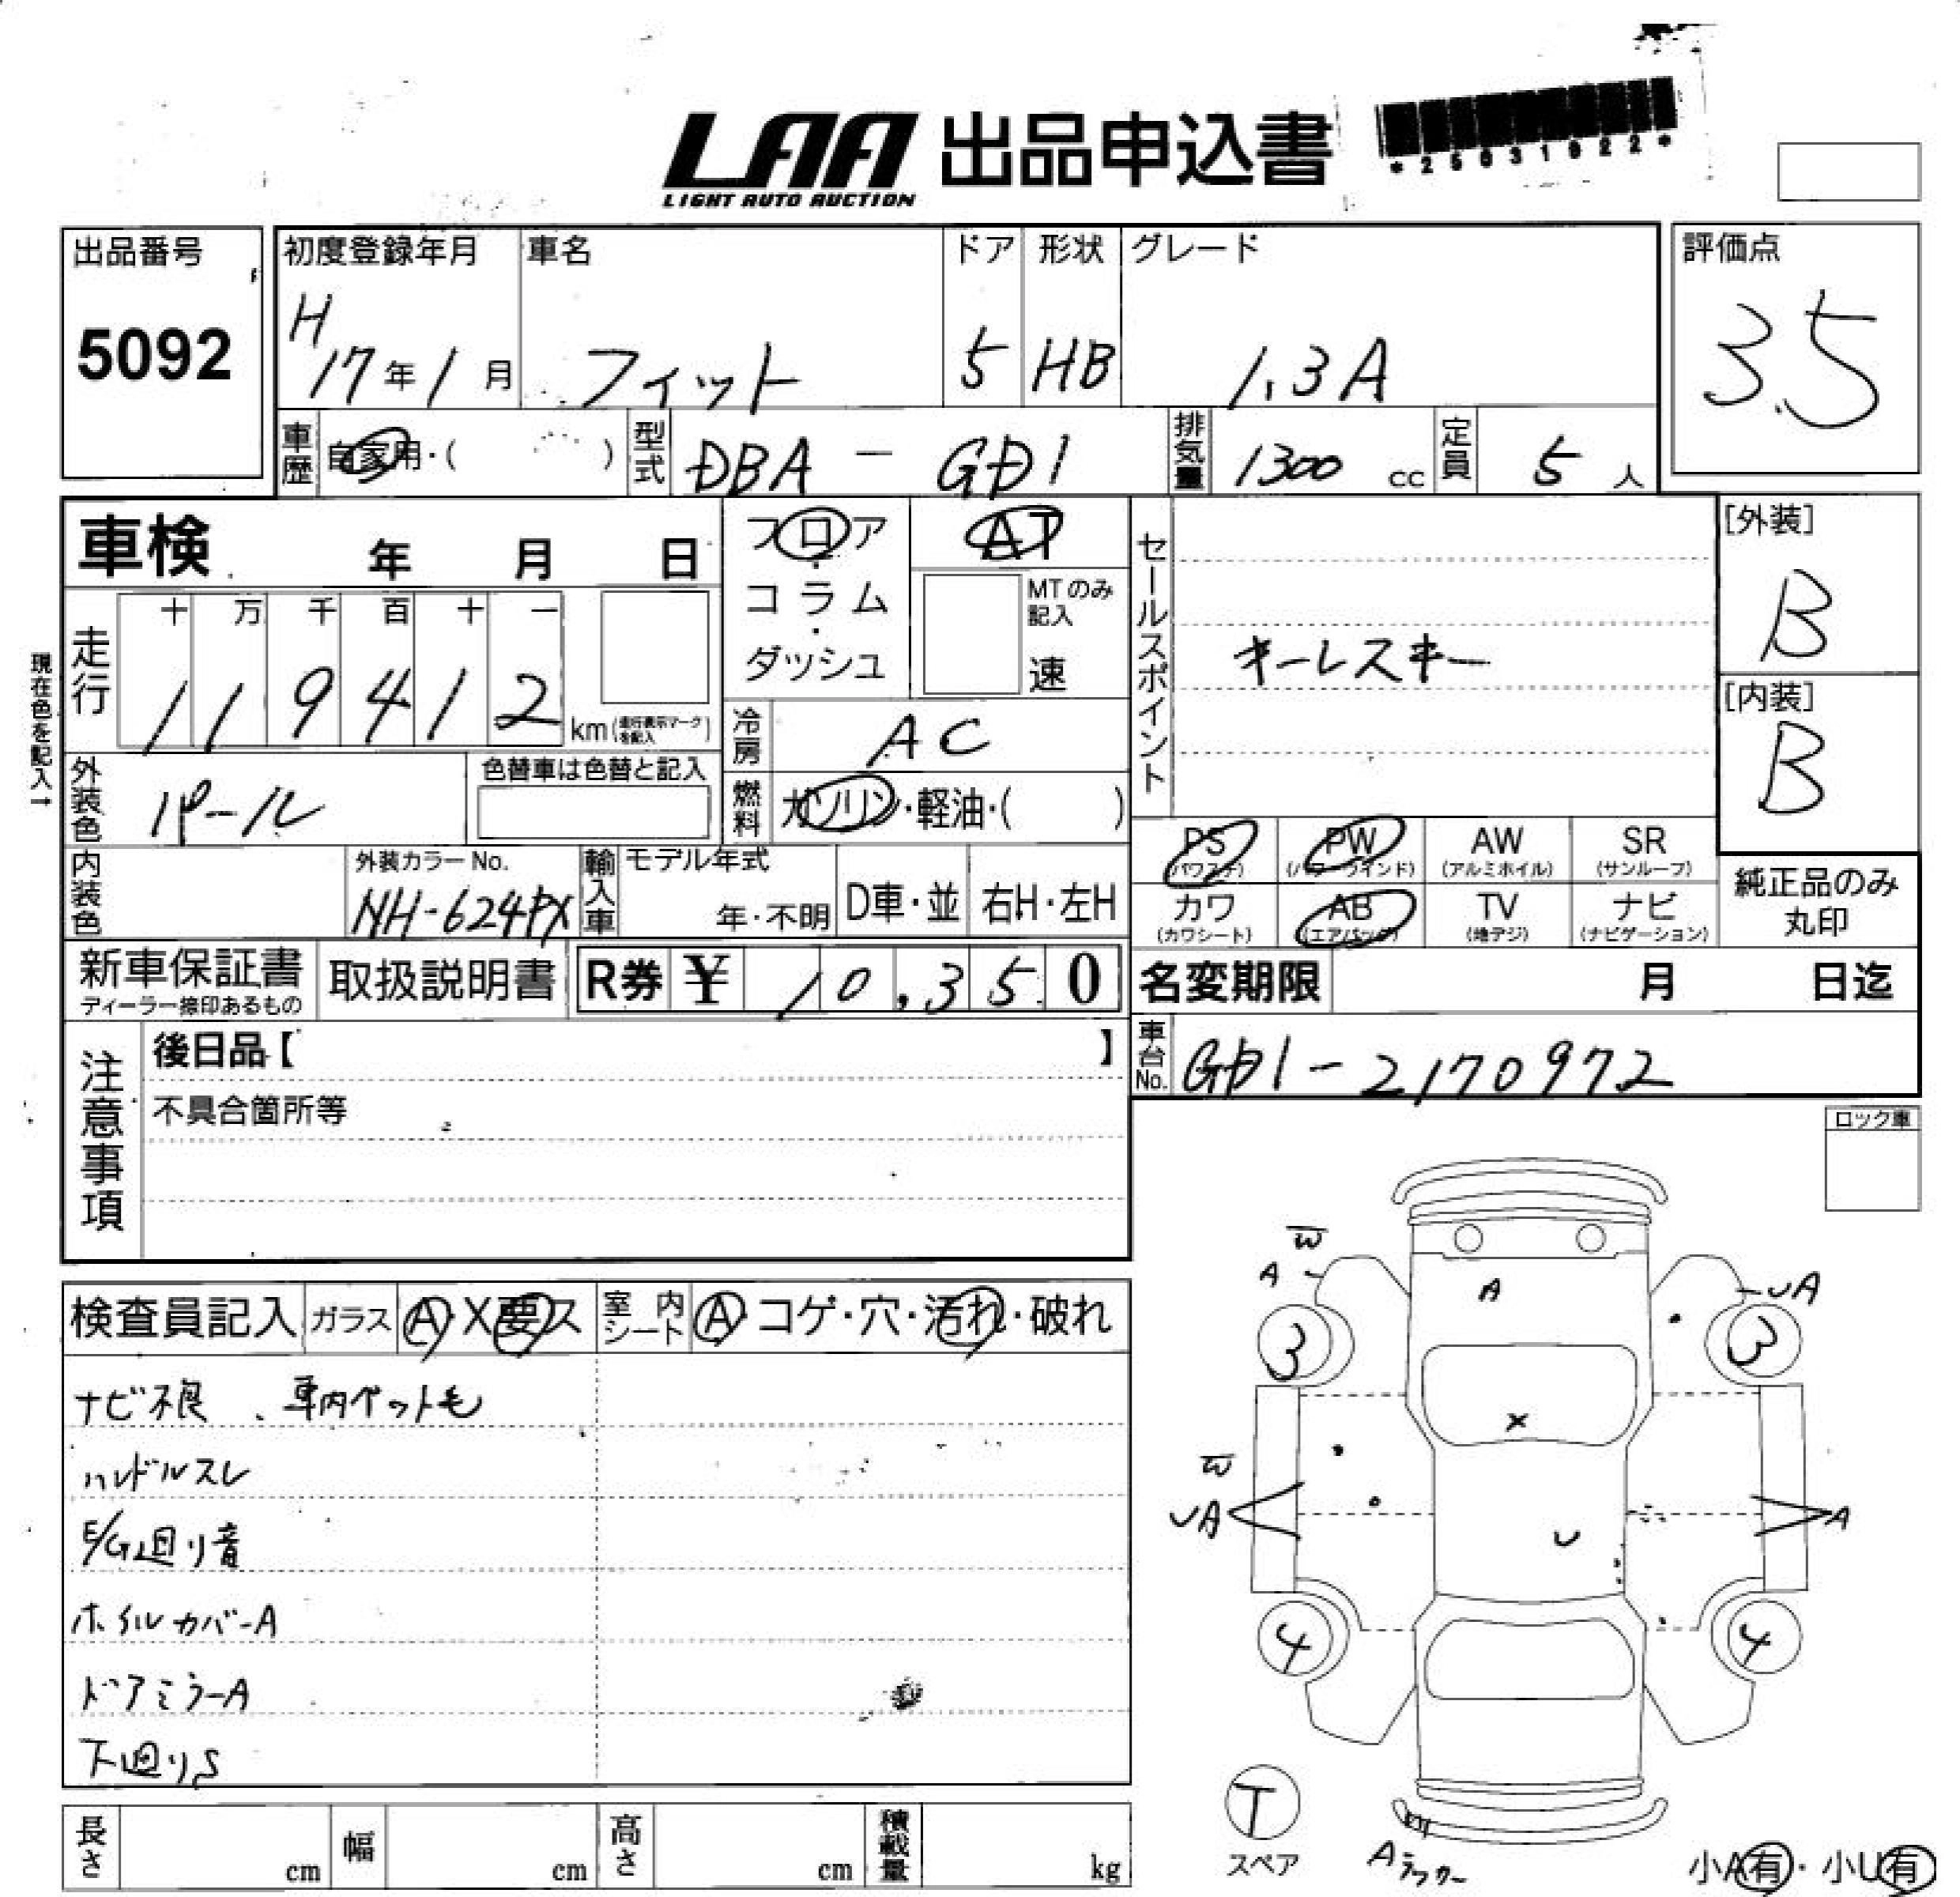 LAA 出品申込書
LIGHT AUTO AUCTION
*25031922*
出品番号
5092
初度登録年月
H
17年1月
車名
フィット
ドア
5
形状
HB
グレード
1.3A
評価点
3.5
車歴
自家用・( )
型式
DBA - GD1
排気量
1300 cc
定員
5 人
車検 年 月 日
フロア・コラム・ダッシュ
AT
MTのみ記入
速
セールスポイント
キーレスキー
[外装]
B
[内装]
B
現在色を記入→
走行
十 万 千 百 十 一
1 1 9 4 1 2
km(走行表示マークを記入)
冷房
AC
外装色
パール
色替車は色替と記入
燃料
ガソリン・軽油・( )
PS (パワステ)
PW (パワーウインド)
AW (アルミホイル)
SR (サンルーフ)
カワ (カワシート)
AB (エアバッグ)
TV (地デジ)
ナビ (ナビゲーション)
純正品のみ
丸印
内装色
外装カラーNo.
NH-624PX
輸入車
モデル年式
年・不明
D車・並
右H・左H
新車保証書
ディーラー捺印あるもの
取扱説明書
R券 ¥ 10,350
名変期限 月 日迄
注意事項
後日品【 】
不具合箇所等
車台No.
GD1-2170972
ロック車
検査員記入
ガラス
A・X要ス
室内シート
A・コゲ・穴・汚れ・破れ
ナビ不良、車内ペット毛
ハンドルスレ
E/G廻り音
ホイルカバーA
ドアミラーA
下廻りS
W
A
A
UA
3
3
X
W
UA
A
U
4
4
T
スペア
Aラッカー
小A有・小U有
長さ cm
幅 cm
高さ cm
積載量 kg